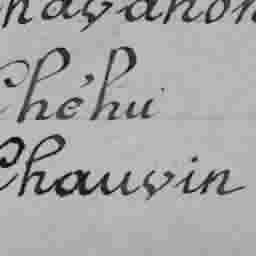 Chavanon
Chéhu
Chauvin